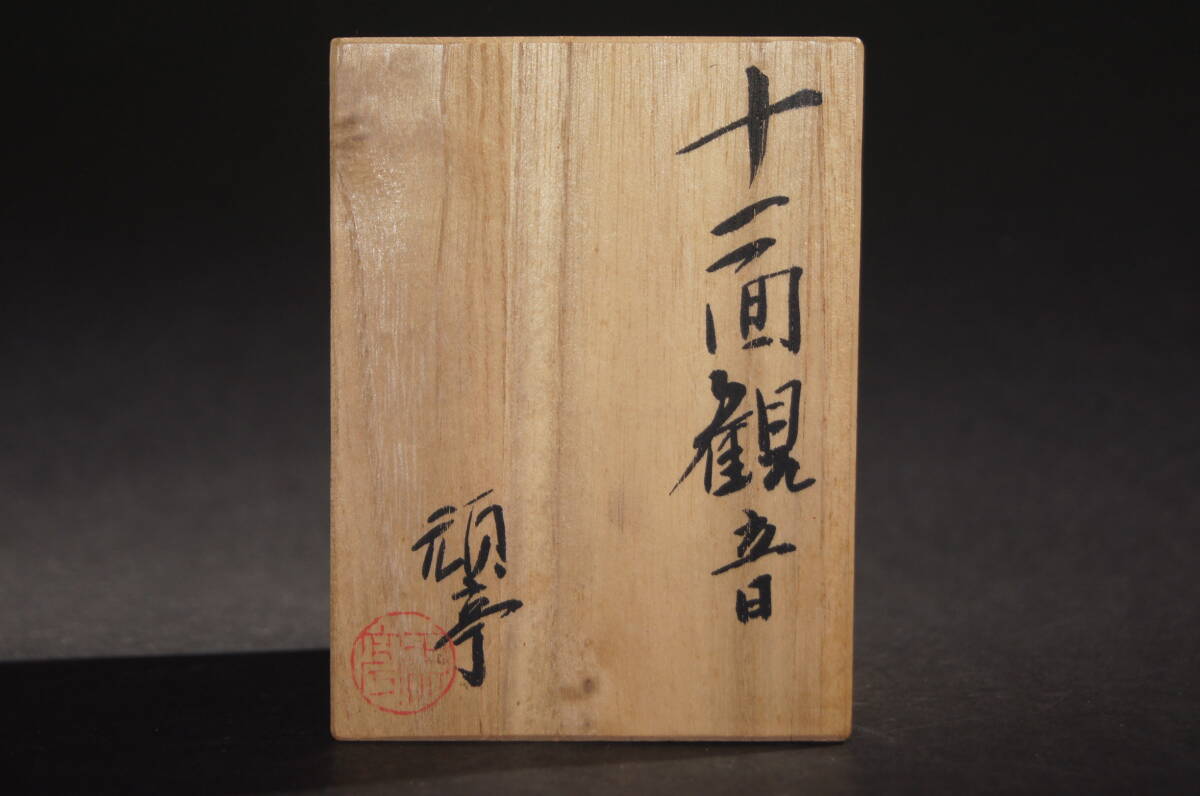 十一面観音
頑亭